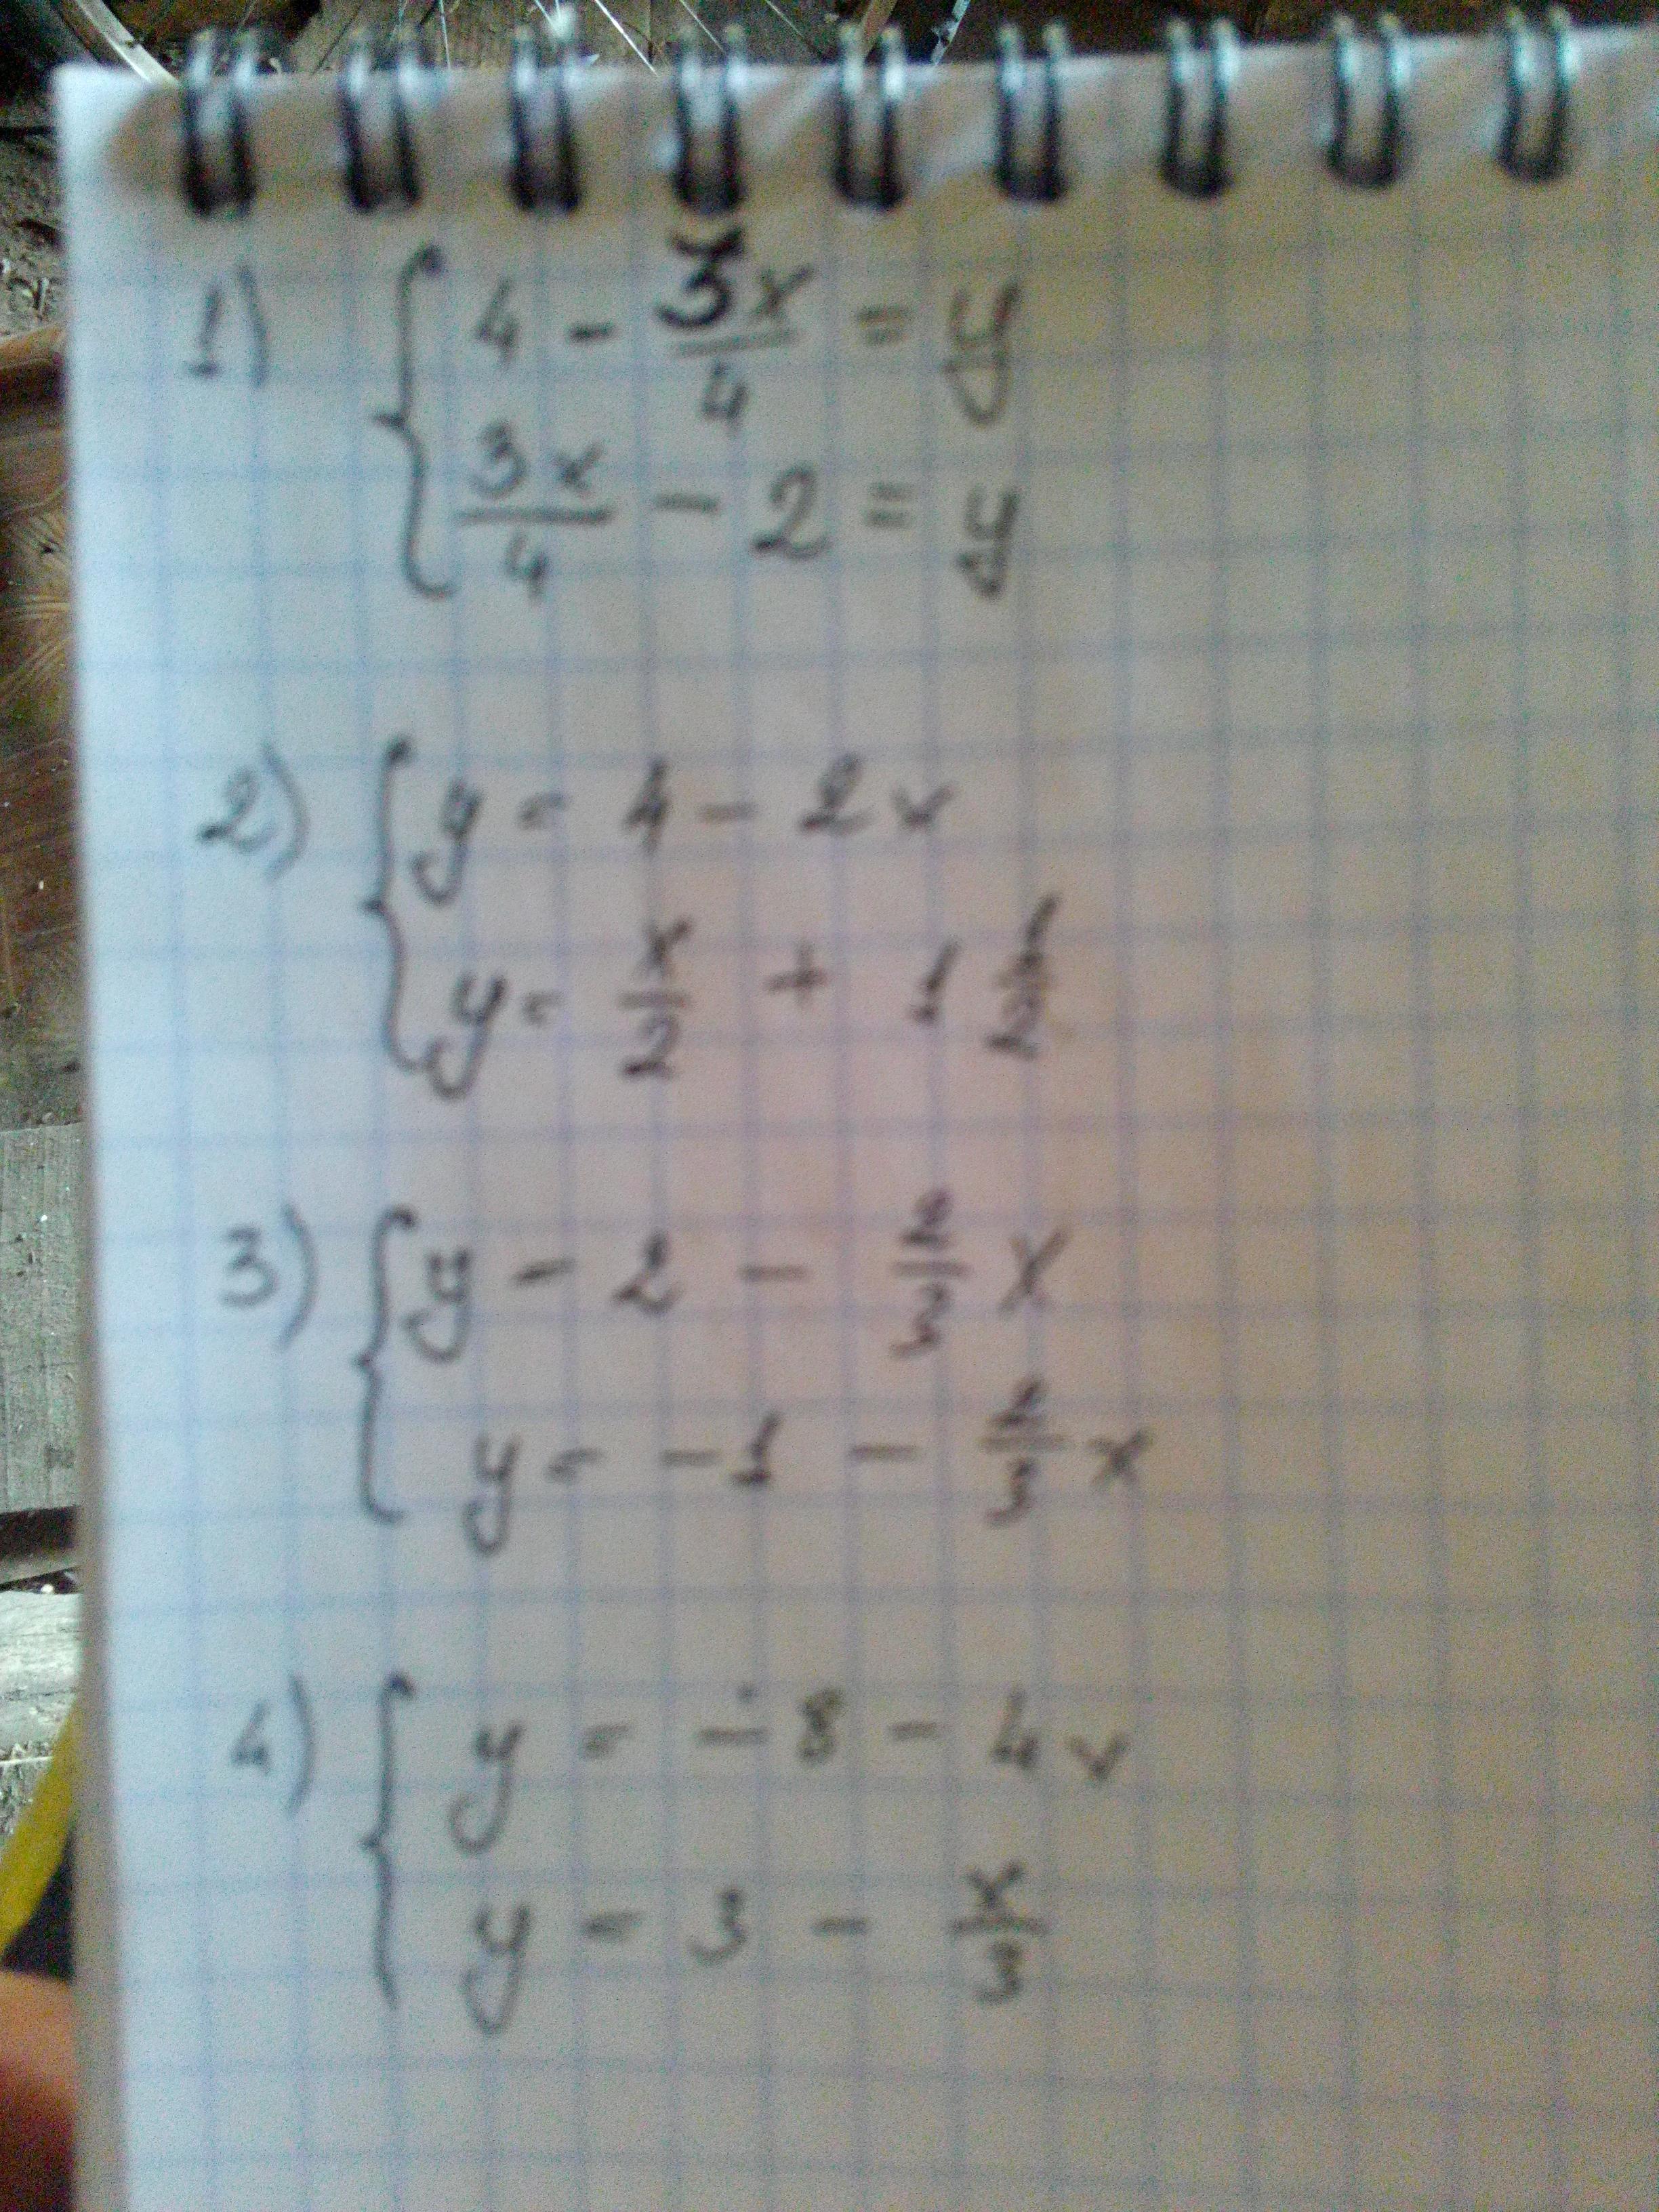 1) { 4 - 3x/4 = y
3x/4 - 2 = y
2) { y = 4 - 2x
y = x/2 + 1 1/2
3) { y = 2 - 2/3 x
y = -1 - 2/3 x
4) { y = -8 - 4x
y = 3 - x/3